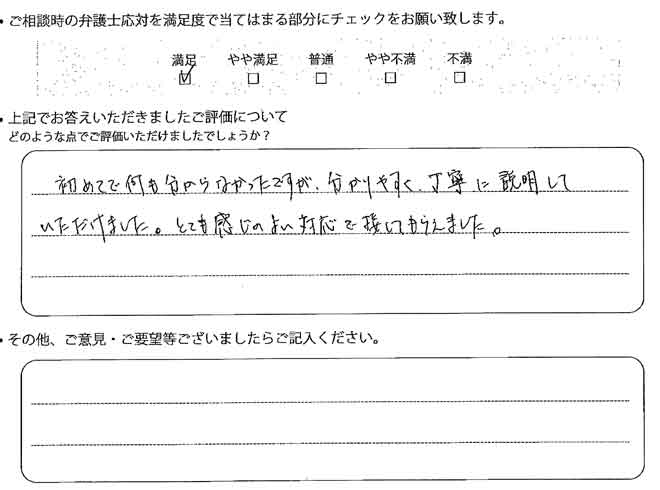 ・ご相談時の弁護士応対を満足度で当てはまる部分にチェックをお願い致します。
満足 やや満足 普通 やや不満 不満
☑ ☐ ☐ ☐ ☐
・上記でお答えいただきましたご評価について
どのような点でご評価いただけましたでしょうか？
初めてで何も分からなかったですが、分かりやすく、丁寧に説明して
いただけました。とても感じのよい対応で接してもらえました。
・その他、ご意見・ご要望等ございましたらご記入ください。